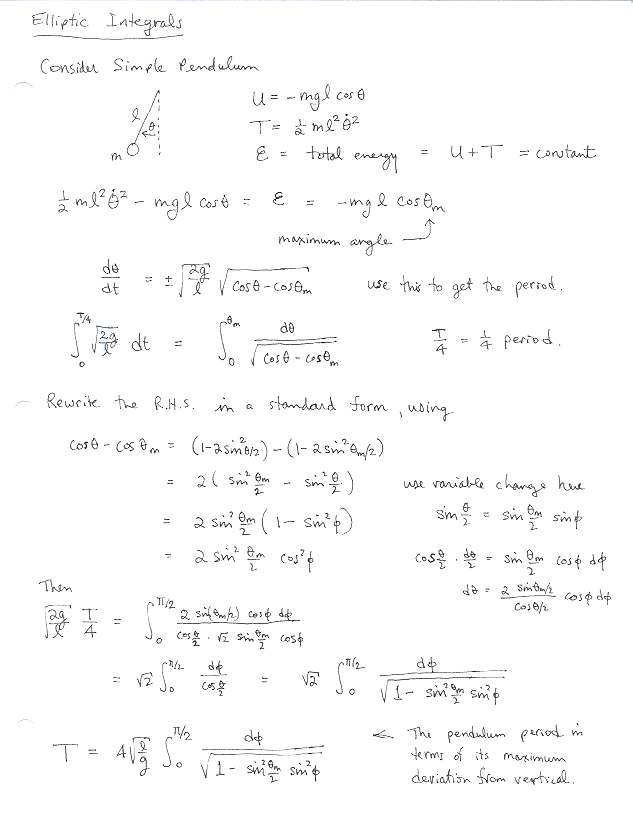 Elliptic Integrals
Consider Simple Pendulum
l θ m
U = - mgl cos θ
T = ½ ml² θ̇²
ℰ = total energy = U + T = constant
½ ml² θ̇² - mgl cos θ = ℰ = - mgl cos θₘ
maximum angle
dθ/dt = ± √(2g/l) √(cos θ - cos θₘ) use this to get the period.
∫₀^{T/4} √(2g/l) dt = ∫₀^{θₘ} dθ / √(cos θ - cos θₘ) T/4 = ¼ period.
Rewrite the R.H.S. in a standard form, using
cos θ - cos θₘ = (1 - 2 sin² θ/2) - (1 - 2 sin² θₘ/2)
= 2 ( sin² θₘ/2 - sin² θ/2 ) use variable change here
= 2 sin² θₘ/2 ( 1 - sin² φ ) sin θ/2 = sin θₘ/2 sin φ
= 2 sin² θₘ/2 cos² φ cos θ/2 · dθ/2 = sin θₘ/2 cos φ dφ
Then dθ = 2 sin θₘ/2 / cos θ/2 cos φ dφ
√(2g/l) T/4 = ∫₀^{π/2} 2 sin(θₘ/2) cos φ dφ / cos θ/2 · √2 sin θₘ/2 cos φ
= √2 ∫₀^{π/2} dφ / cos θ/2 = √2 ∫₀^{π/2} dφ / √(1 - sin² θₘ/2 sin² φ)
T = 4 √(l/g) ∫₀^{π/2} dφ / √(1 - sin² θₘ/2 sin² φ) ← The pendulum period in
terms of its maximum
deviation from vertical.